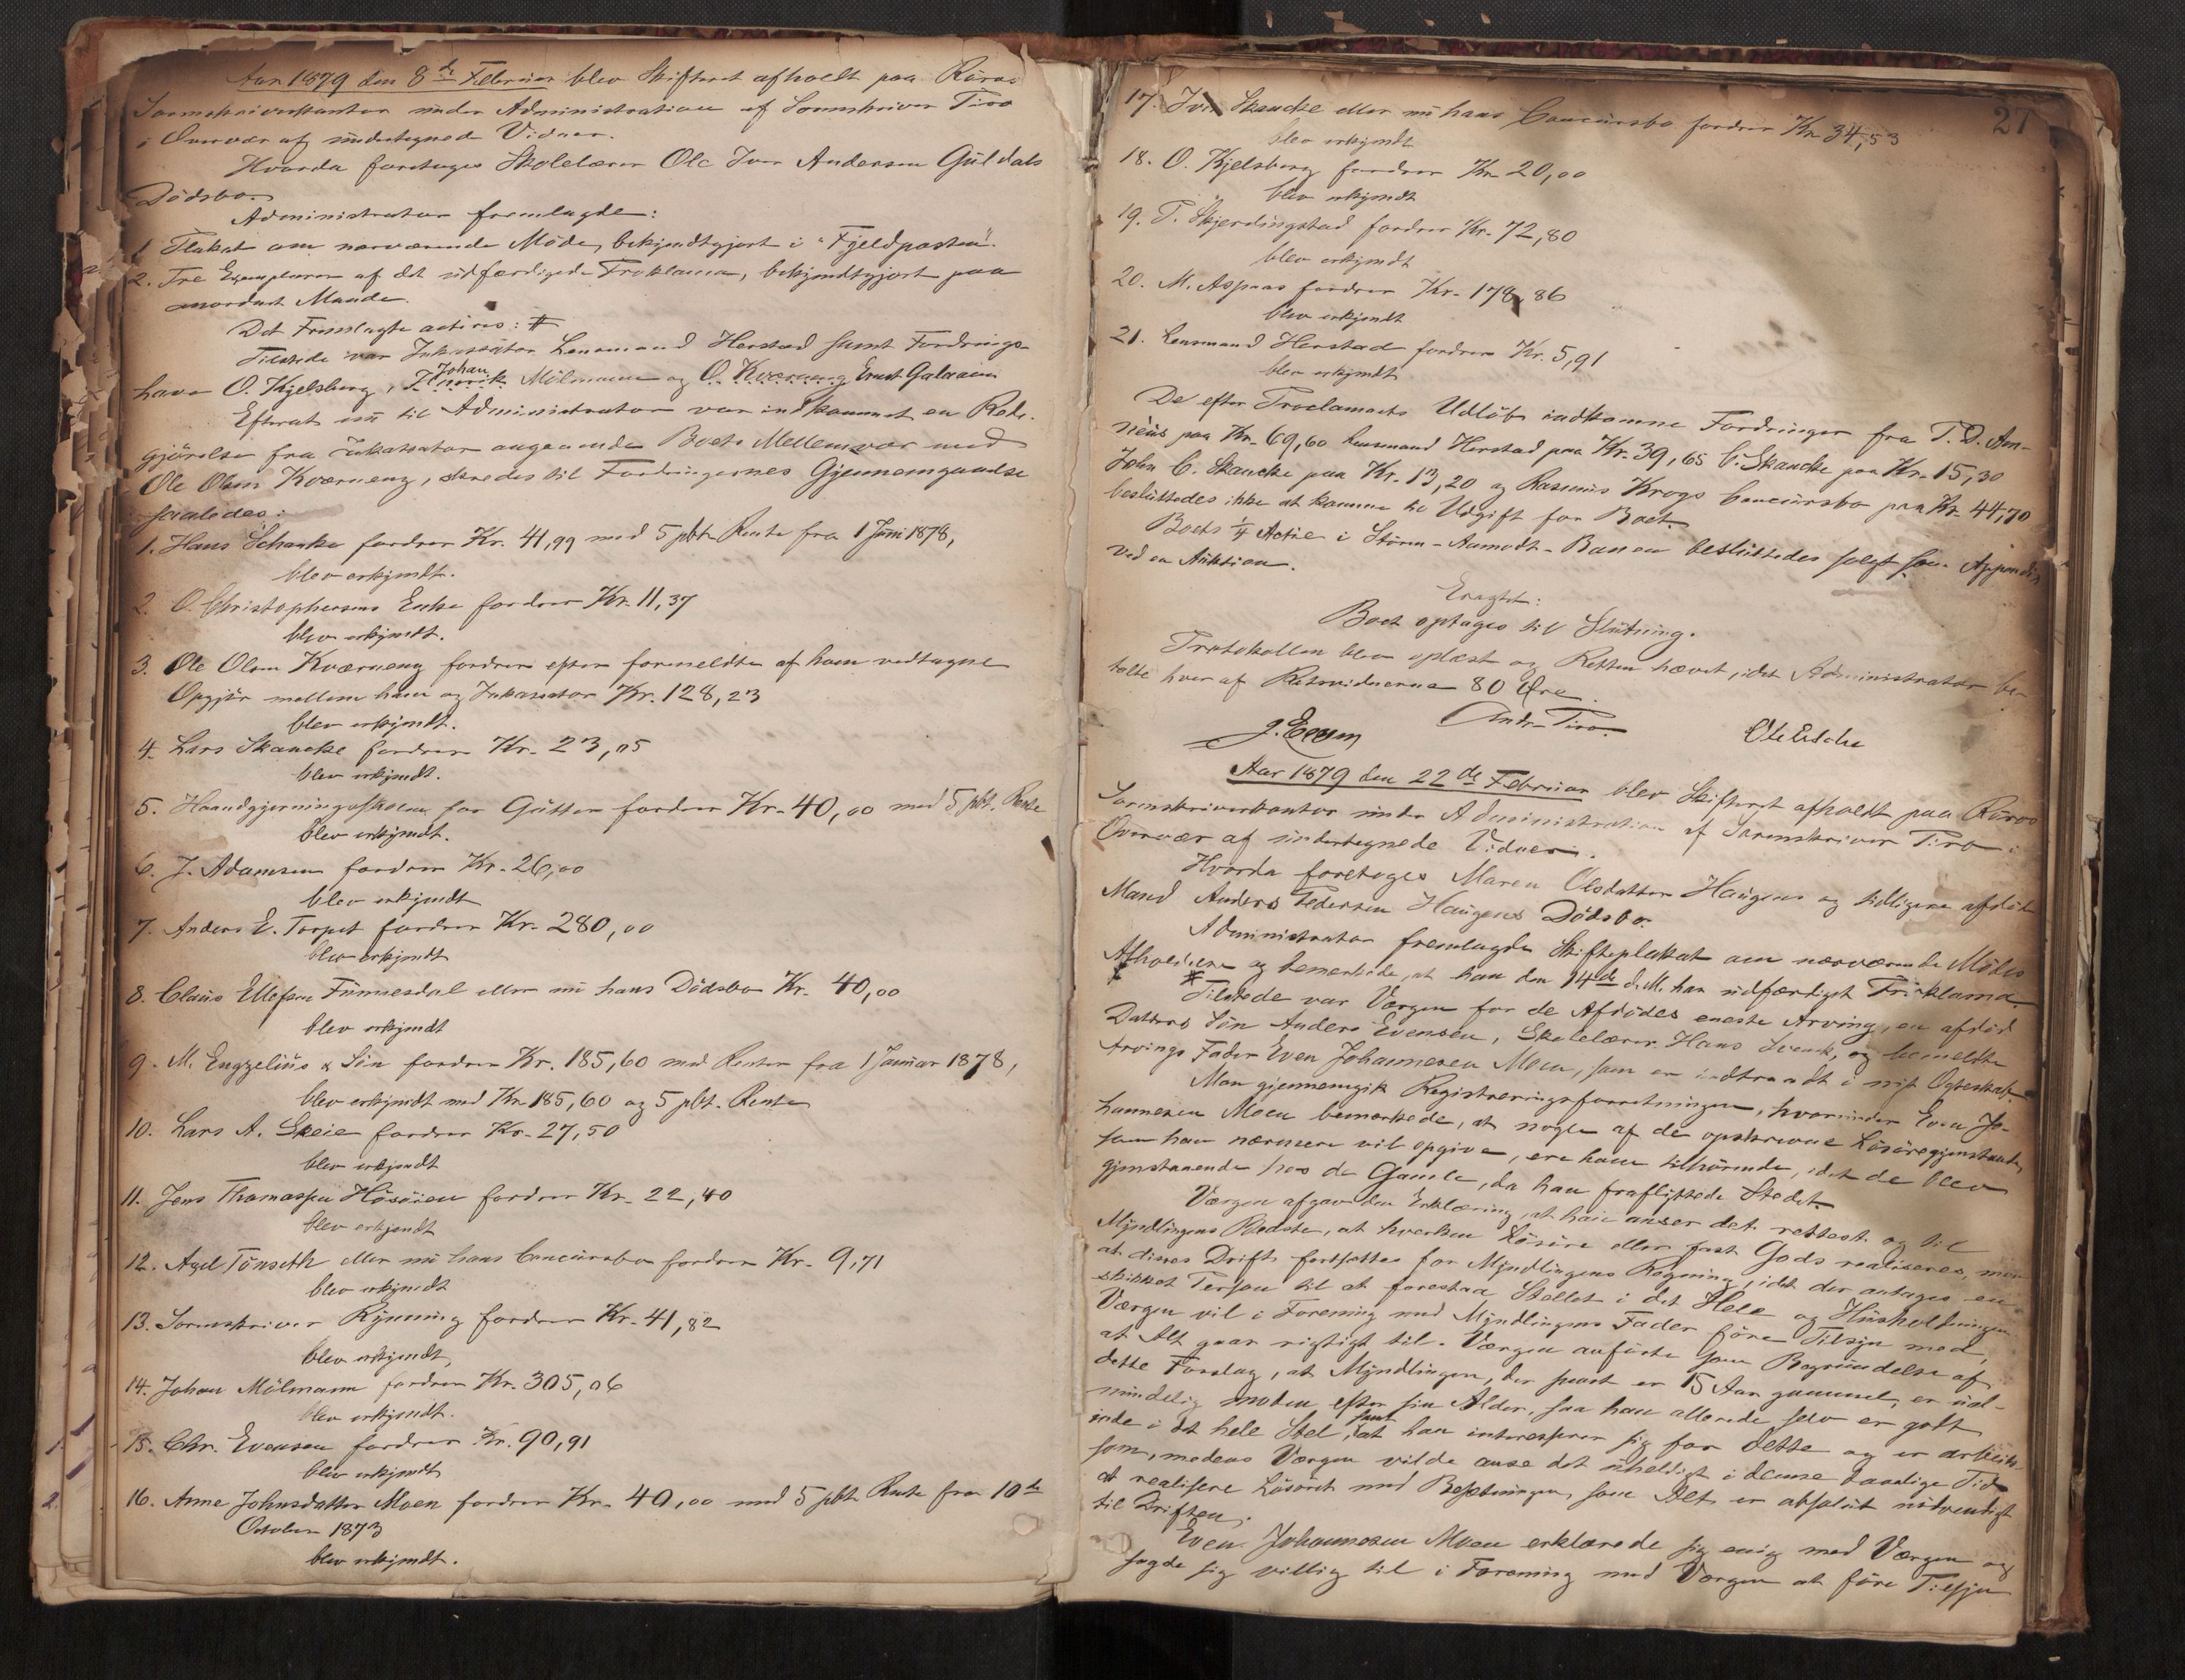 Aar 1879 den 8de Februar blev Skifteret afholdt paa Röros
Sorenskriverkontor under Administration af Sorenskriver Tiro
i Overvær af undertegnede Vidner.
Hvorda foretoges Skolelærer Ole Iver Andersen Guldals
Dödsbo.
Administrator fremlagde:
1 Plakat om nærværende Möde, bekjendtgjort i "Fjeldposten".
2. Tre Exemplarer af det udfærdigede Proklama, bekjendtgjort paa
anordnet Maade.
Det Fremlagte acteres: #
Tilstede var Inkassator Lensmand Herstad samt Fordrings-
havere O. Kjelsberg, Johan Mölmann og O. Kværneng Ernst Galaaen
Efterat nu til Administrator var indkommet en Rede-
gjörelse fra Inkassator angaaende Boets Mellemvær med
Ole Olsen Kværneng, skredes til Fordringernes Gjennemgaaelse
saaledes:
1. Hans Schanke fordrer Kr. 41,99 med 5 pCt. Rente fra 1 Juni 1878,
blev erkjendt.
2. O. Christophersens Enke fordrer Kr. 11,37
blev erkjendt.
3. Ole Olsen Kværneng fordrer efter formeldte af ham vedtagne
Opgjör mellem ham og Inkassator Kr. 128,23
blev erkjendt.
4. Lars Skancke fordrer Kr. 23,05
blev erkjendt.
5. Haandgjerningsskolen for Gutter fordrer Kr. 40,00 med 5 pCt. Rente
blev erkjendt.
6. J. Adamsen fordrer Kr. 26,00
blev erkjendt
7. Anders E. Torpet fordrer Kr. 280,00
blev erkjendt
8. Claus Ellefsen Funnesdal eller nu hans Dödsbo Kr. 40,00
blev erkjendt
9. M. Engzelius & Sön fordrer Kr. 185,60 med Renter fra 1 Januar 1878,
blev erkjendt med Kr. 185,60 og 5 pCt. Rente
10. Lars A. Skeie fordrer Kr. 27,50
blev erkjendt
11. Jens Thomassen Hösöien fordrer Kr. 22,40
blev erkjendt
12. Axel Tönseth eller nu hans Concursbo fordrer Kr. 9,71
blev erkjendt
13. Sorenskriver Rynning fordrer Kr. 41,82
blev erkjendt,
14. Johan Mölmann fordrer Kr. 305,06
blev erkjendt.
15. Chr. Evensen fordrer Kr. 90,91
blev erkjendt
16. Anne Johnsdatter Moen fordrer Kr. 40,00 med 5 pCt. Rente fra 10de
October 1873
blev erkjendt.
27
17. Iver Skancke eller nu hans Concursbo fordrer Kr. 34,53
blev erkjendt
18. O. Kjelsberg fordrer Kr. 20,00
blev erkjendt
19. P. Skjerdingstad fordrer Kr. 72,80
blev erkjendt
20. M. Aspaas fordrer Kr. 178,86
blev erkjendt
21. Lensmand Herstad fordrer Kr. 5,91
blev erkjendt
De efter Proclamaets Udlöb indkomne Fordringer fra P. D. Am-
néus paa Kr. 69,60 Lensmand Herstad paa Kr. 39,65 C. Skancke paa Kr. 15,30
John C. Skancke paa Kr. 13,20 og Rasmus Krogs Concursbo paa Kr. 44,70
besluttedes ikke at komme til Udgift for Boet.
Boets 1/4 Actie i Stören-Aamodt-Banen besluttedes solgt som Appendix
ved en Auktion.
Eragtet:
Boet optages til Slutning.
Protokollen blev oplæst og Retten hævet, idet Administrator be-
talte hver af Retsvidnerne 80 Öre.
J. Engen Andr. Tiro. Ole Esche
Aar 1879 den 22de Februar blev Skifteret afholdt paa Röros
Sorenskriverkontor under Administration af Sorenskriver Tiro i
Overvær af undertegnede Vidner.
Hvorda foretoges Maren Olsdatter Haugens og tidligere afdöde
Mand Anders Pedersen Haugens Dödsbo.
Administrator fremlagde Skifteplakat om nærværende Mödes
Afholdelse og bemærkede, at han den 14de d. M. har udfærdiget Proklama.
# Tilstede var Værgen for de Afdödes eneste Arving, en afdöd
Datters Sön Anders Evensen, Skolelærer Hans Svensk, og bemeldte
Arvings Fader Even Johannesen Moen, som er indtraadt i nyt Ægteskab.
Man gjennemgik Registreringsforretningen, hvorunder Even Jo-
hannesen Moen bemærkede, at nogle af de opskrevne Lösöregjenstande,
som han nærmere vil opgive, ere ham tilhörende, idet de blev
gjenstaaende hos de Gamle, da han fraflyttede Stedet.
Værgen afgav den Erklæring, at han anser det rettest og til
Myndlingens Bedste, at hverken Lösöre eller fast Gods realiseres, men
at dines Drift fortsættes for Myndlingens Regning, idet der antages en
skikket Person til at forestaa Stellet i det Hele og Husholdningen
Værgen vil i Forening med Myndlingens Fader före Tilsyn med,
at Alt gaar rigtigt til. Værgen anförte som Begrundelse af
dette Forslag, at Myndlingen, der snart er 15 Aar gammel, er ual-
mindelig moden efter sin Alder, saa han allerede selv er godt
inde i det hele Stel, samt at han interesserer sig for dette og er arbeid-
som, medens Værgen vilde anse det uheldigt i denne daarlige Tid
at realisere Lösöret med Besætningen, som Alt er absolut nödvendigt
til Driften.
Even Johannesen Moen erklærede sig enig med Værgen og
sagde sig villig til i Forening med Værgen at före Tilsyn